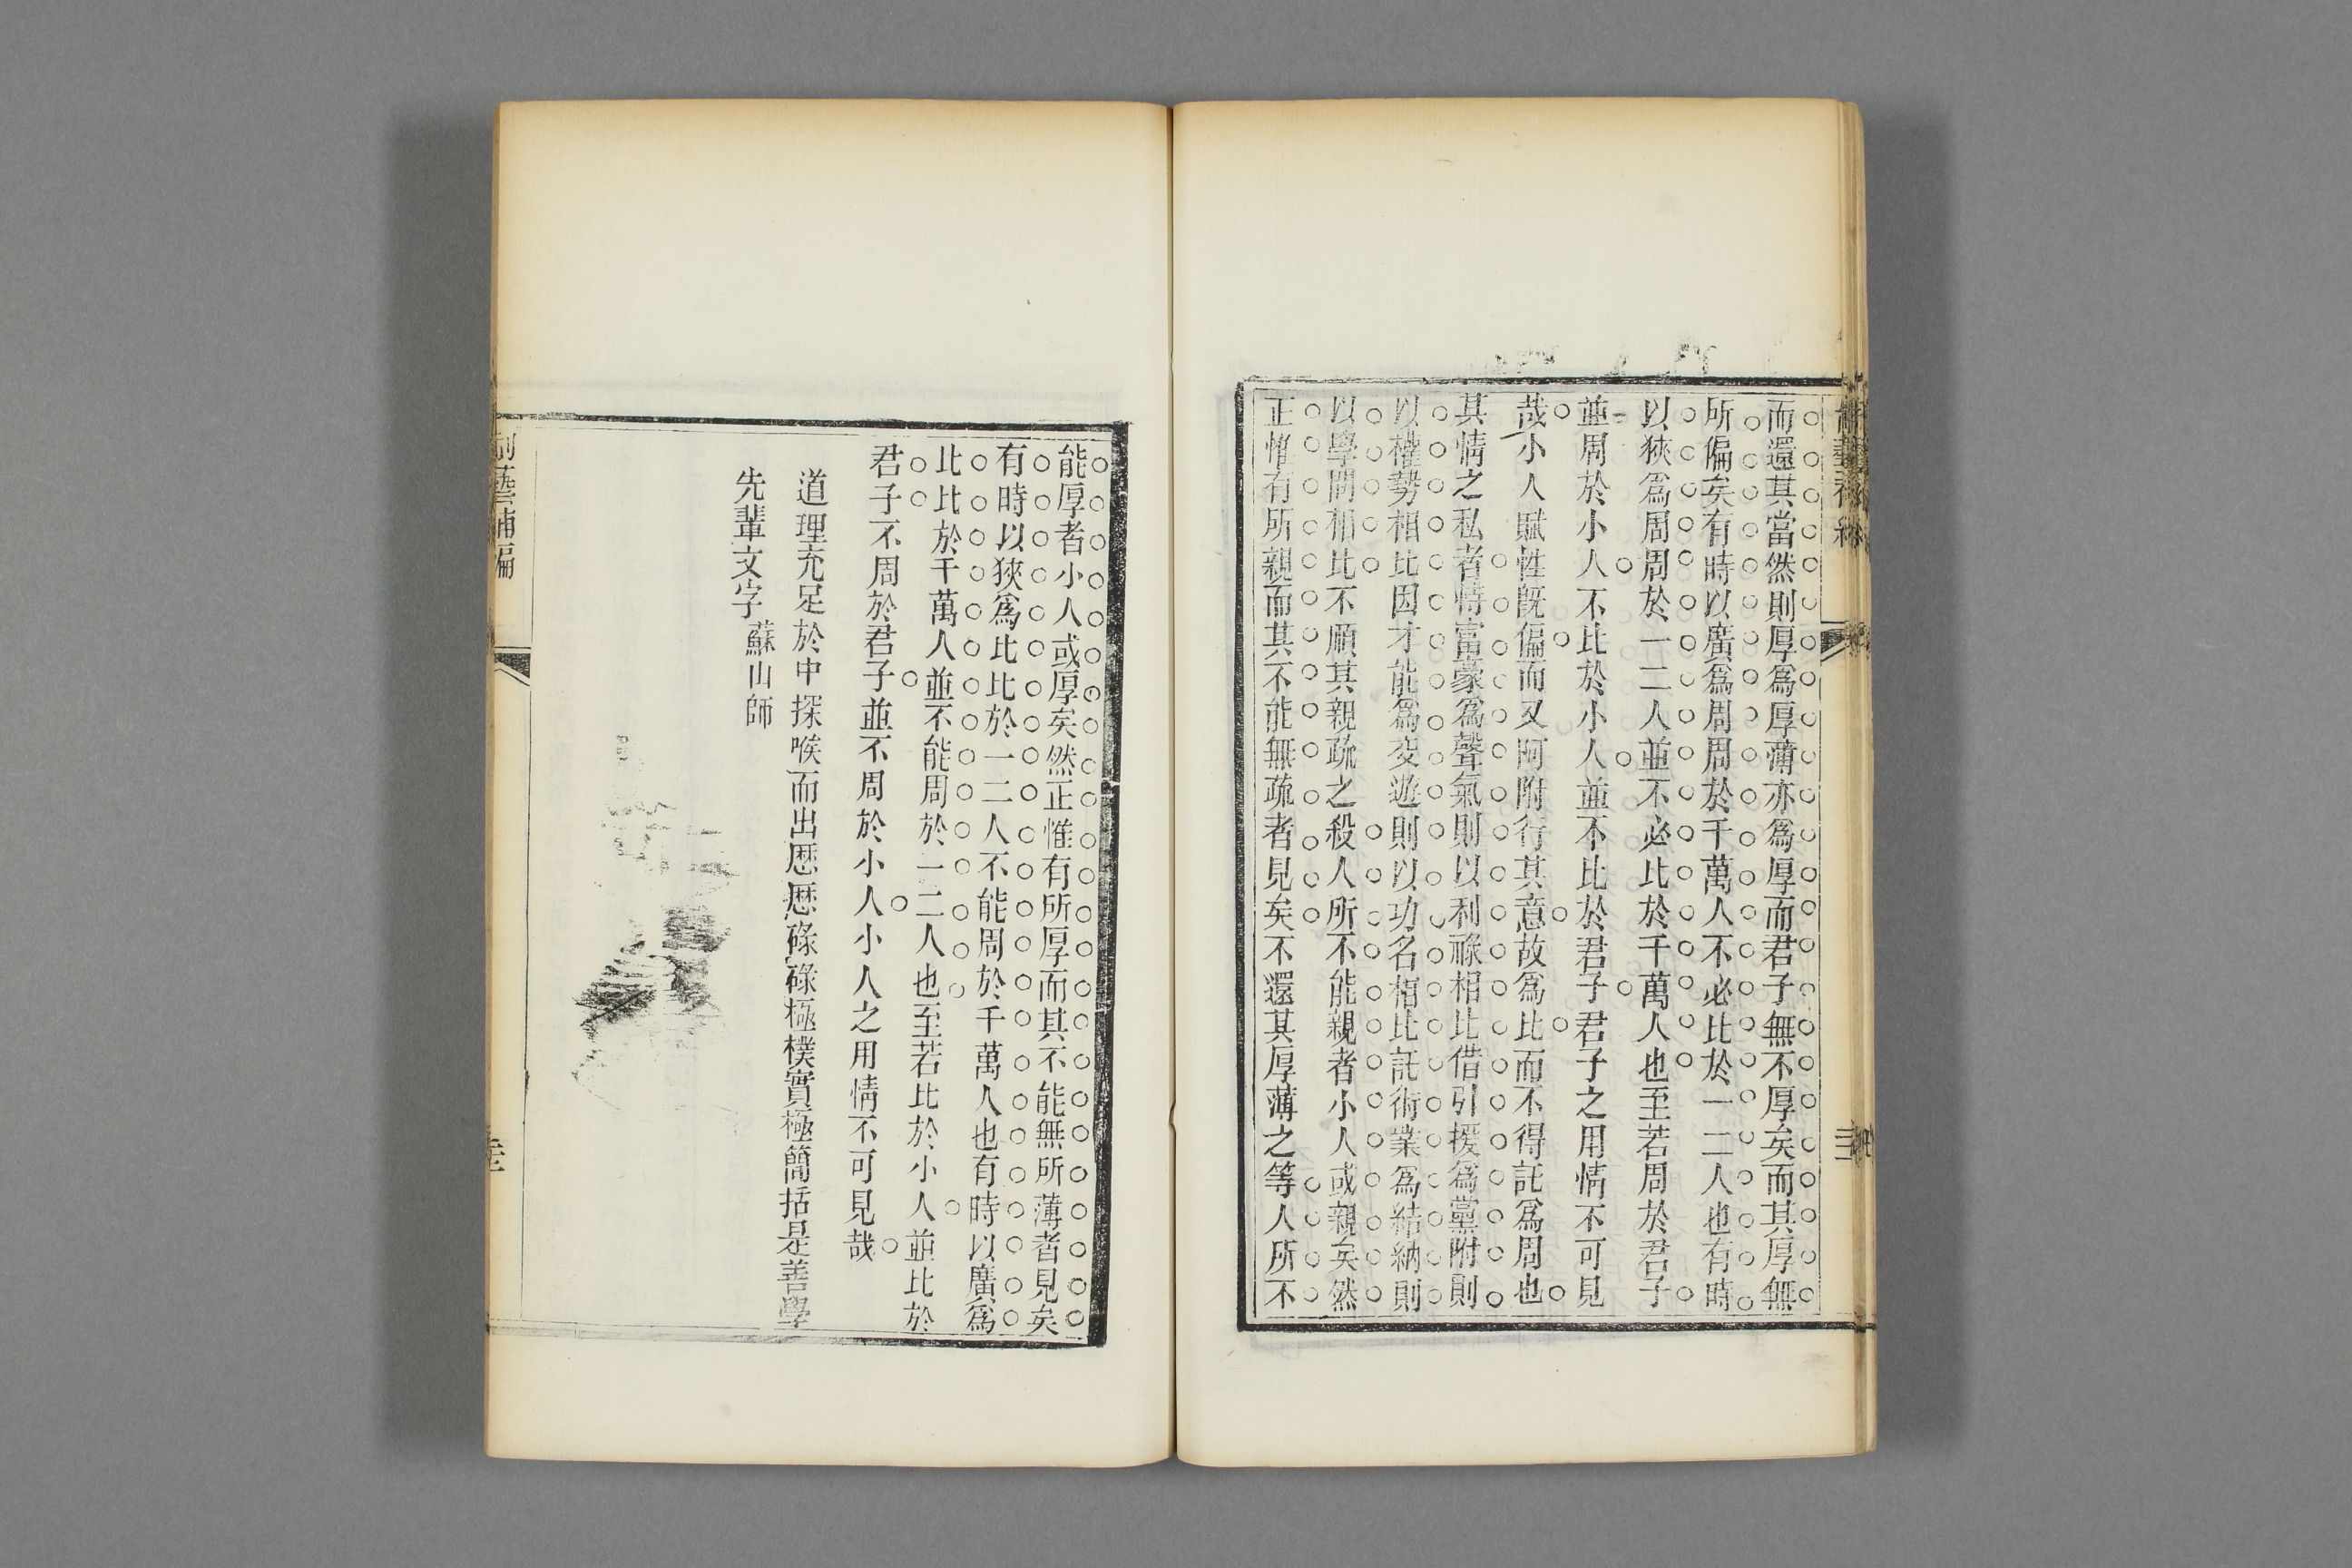 而還其當然則厚爲厚薄亦爲厚而君子無不厚矣而其厚無
所偏矣有時以廣爲周周於千萬人不必比於一二人也有時
以狹爲周周於一二人並不必比於千萬人也至若周於君子
並周於小人不比於小人並不比於君子君子之用情不可見
哉小人賦性旣偏而又阿附行其意故爲比而不得託爲周也
其情之私者恃富豪爲聲氣則以利祿相比借引援爲黨附則
以權勢相比因才能爲交遊則以功名相比託術業爲結納則
以學問相比不順其親疏之殺人所不能親者小人或親矣然
正惟有所親而其不能無疏者見矣不還其厚薄之等人所不
能厚者小人或厚矣然正惟有所厚而其不能無所薄者見矣
有時以狹爲比比於一二人不能周於千萬人也有時以廣爲
比比於千萬人並不能周於一二人也至若比於小人並比於
君子不周於君子並不周於小人小人之用情不可見哉
道理充足於中探喉而出歷歷碌碌極樸實極簡括是善學
先輩文字 蘇山師
制藝補編